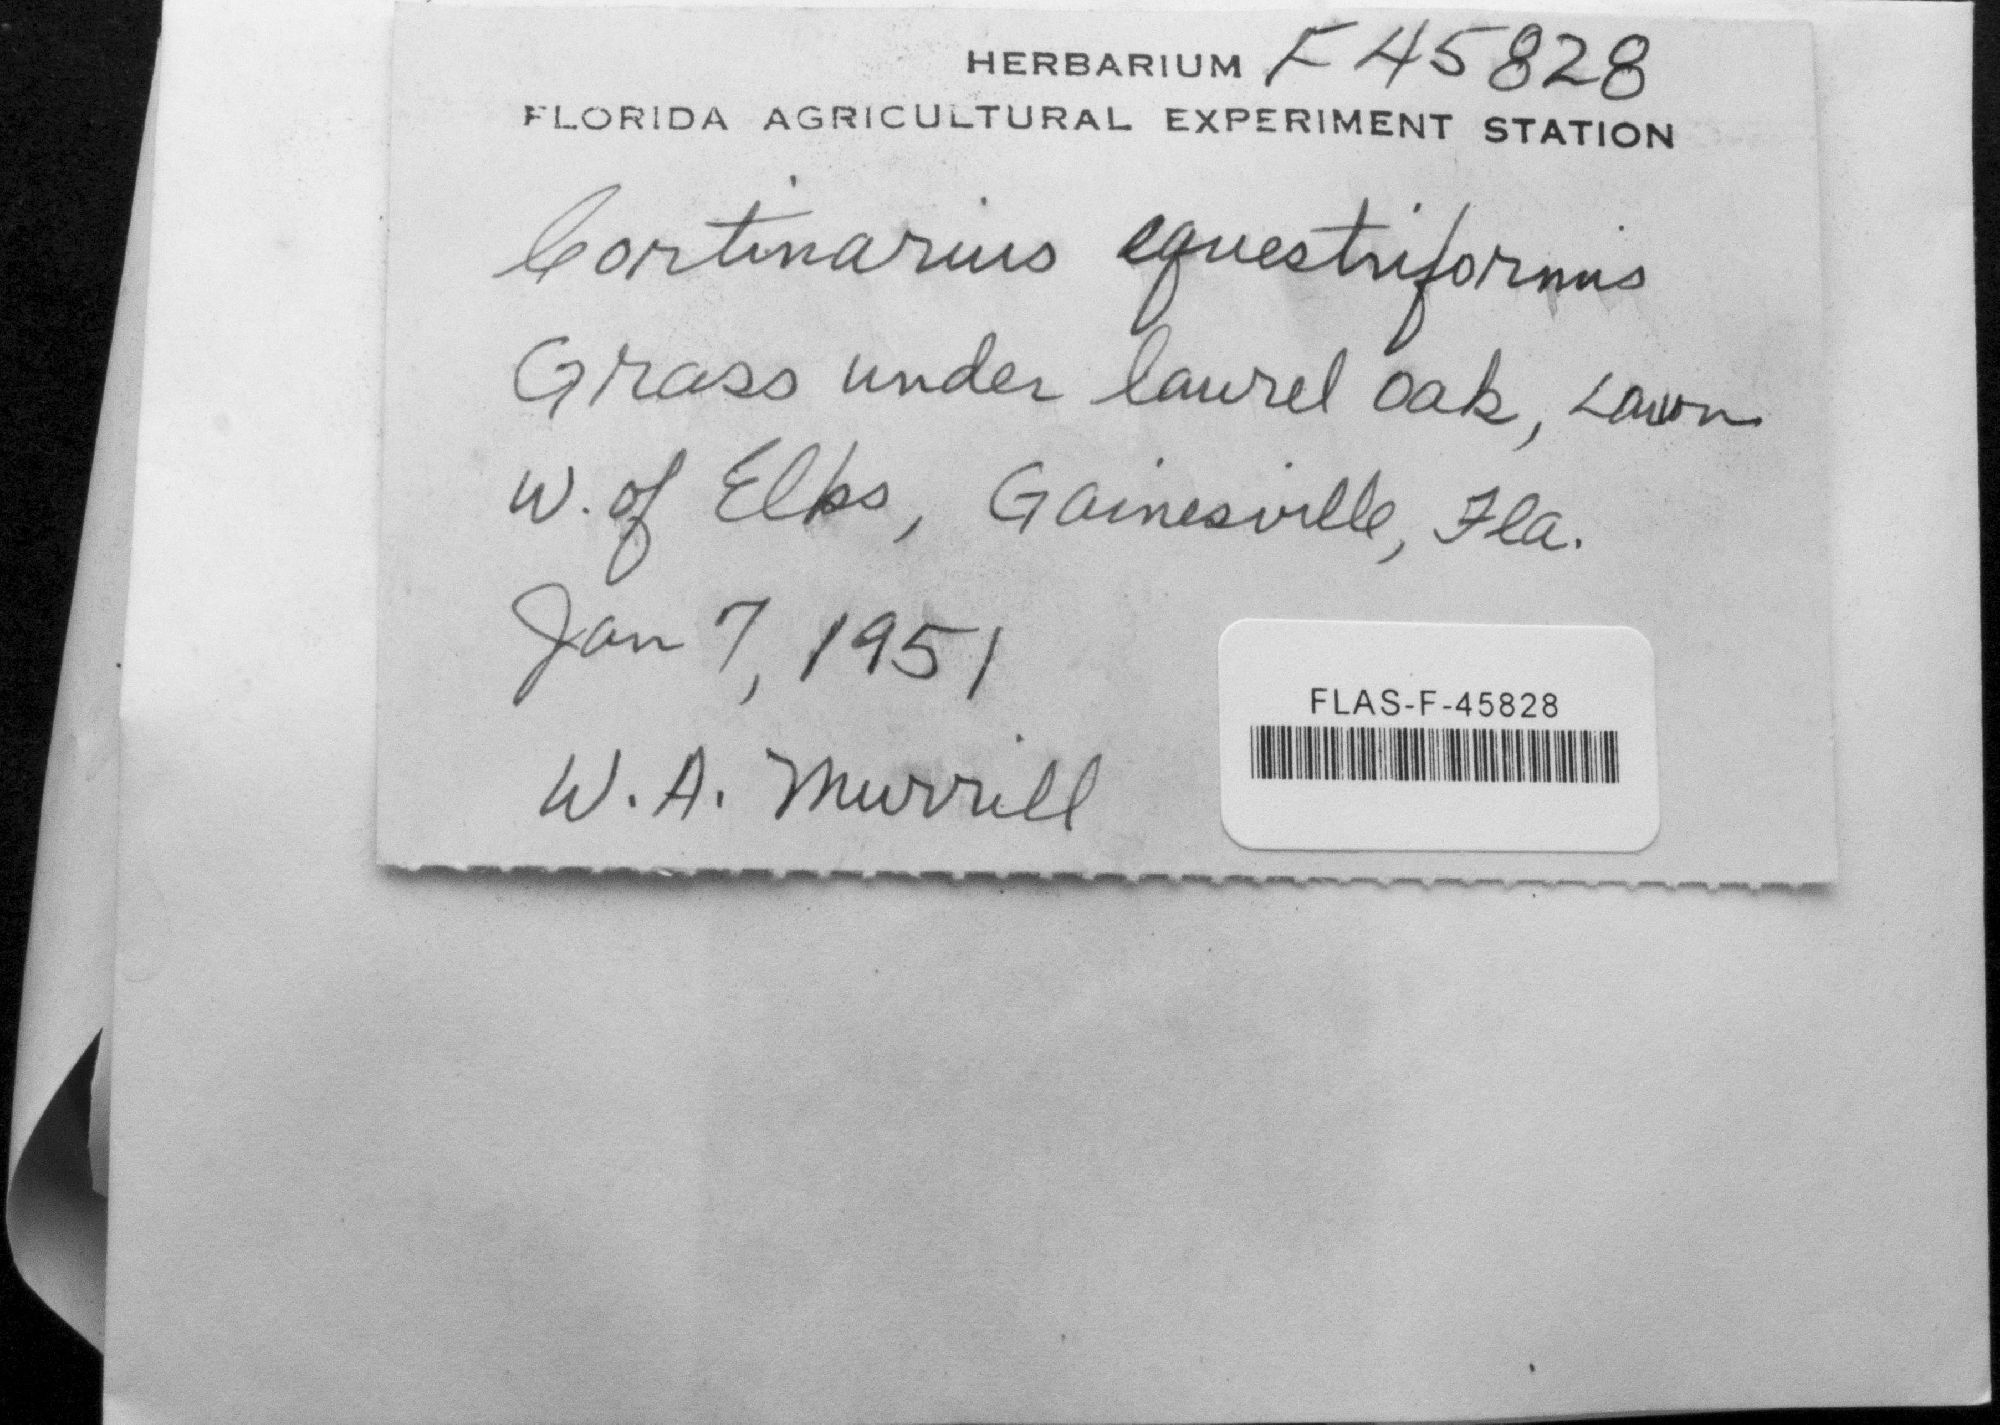 HERBARIUM F 45828
FLORIDA AGRICULTURAL EXPERIMENT STATION
Cortinarius equestriformis
Grass under laurel oak, Lawn
W. of Elks, Gainesville, Fla.
Jan 7, 1951
W. A. Murrill
FLAS-F-45828